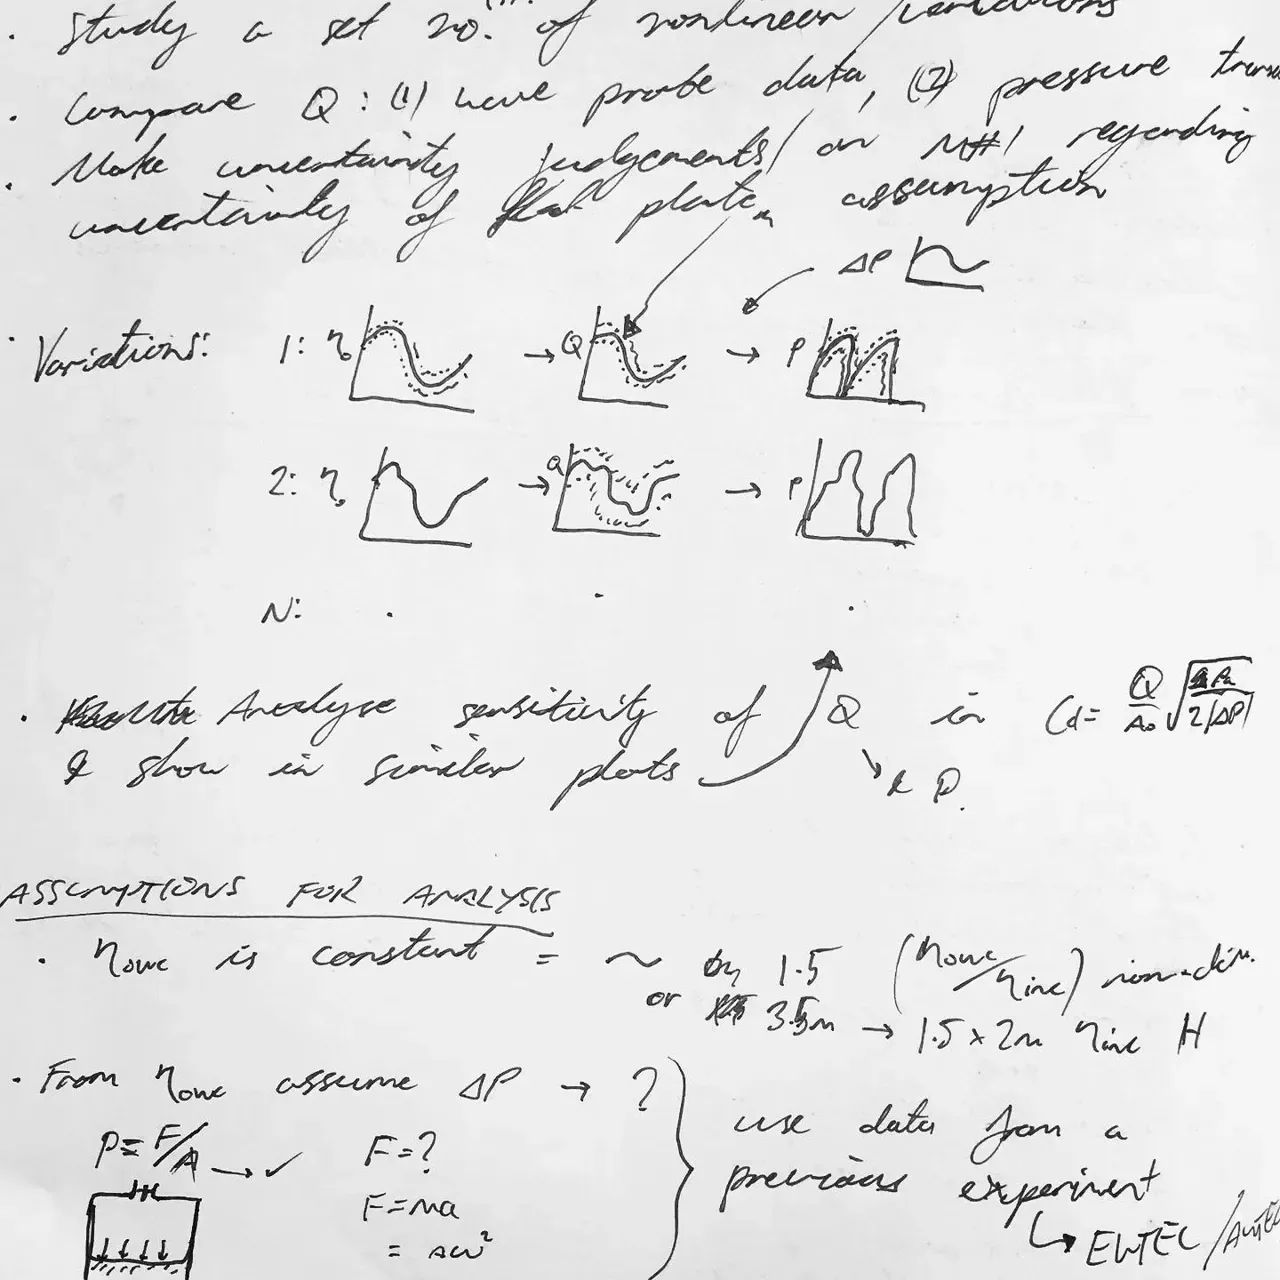 · Study a set no. of nonlinear variations
· Compare Q : (1) wave probe data, (2) pressure trans
· Make uncertainty judgements on M#1 regarding
uncertainty of flat plate assumption
ΔP
· Variations: 1: η → Q → P
2: η → Q → P
N: · · ·
· Analyse sensitivity of Q in Cd= Q/A₀ √ 2|ΔP|
& show in similar plots
& P.
ASSUMPTIONS FOR ANALYSIS
· ηowc is constant = ~ by 1.5 (ηowc/ηinc) non-dim.
or 3.5m → 1.5 × 2m ηinc H
· From ηowc assume ΔP → ?
use data from a
P = F/A → ✓ F = ?
previous experiment
F = ma
↳ EWTEC / AWTEC
= aω²